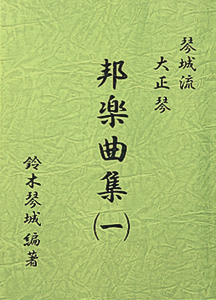 琴城流
大正琴
邦楽曲集(一)
鈴木琴城編著